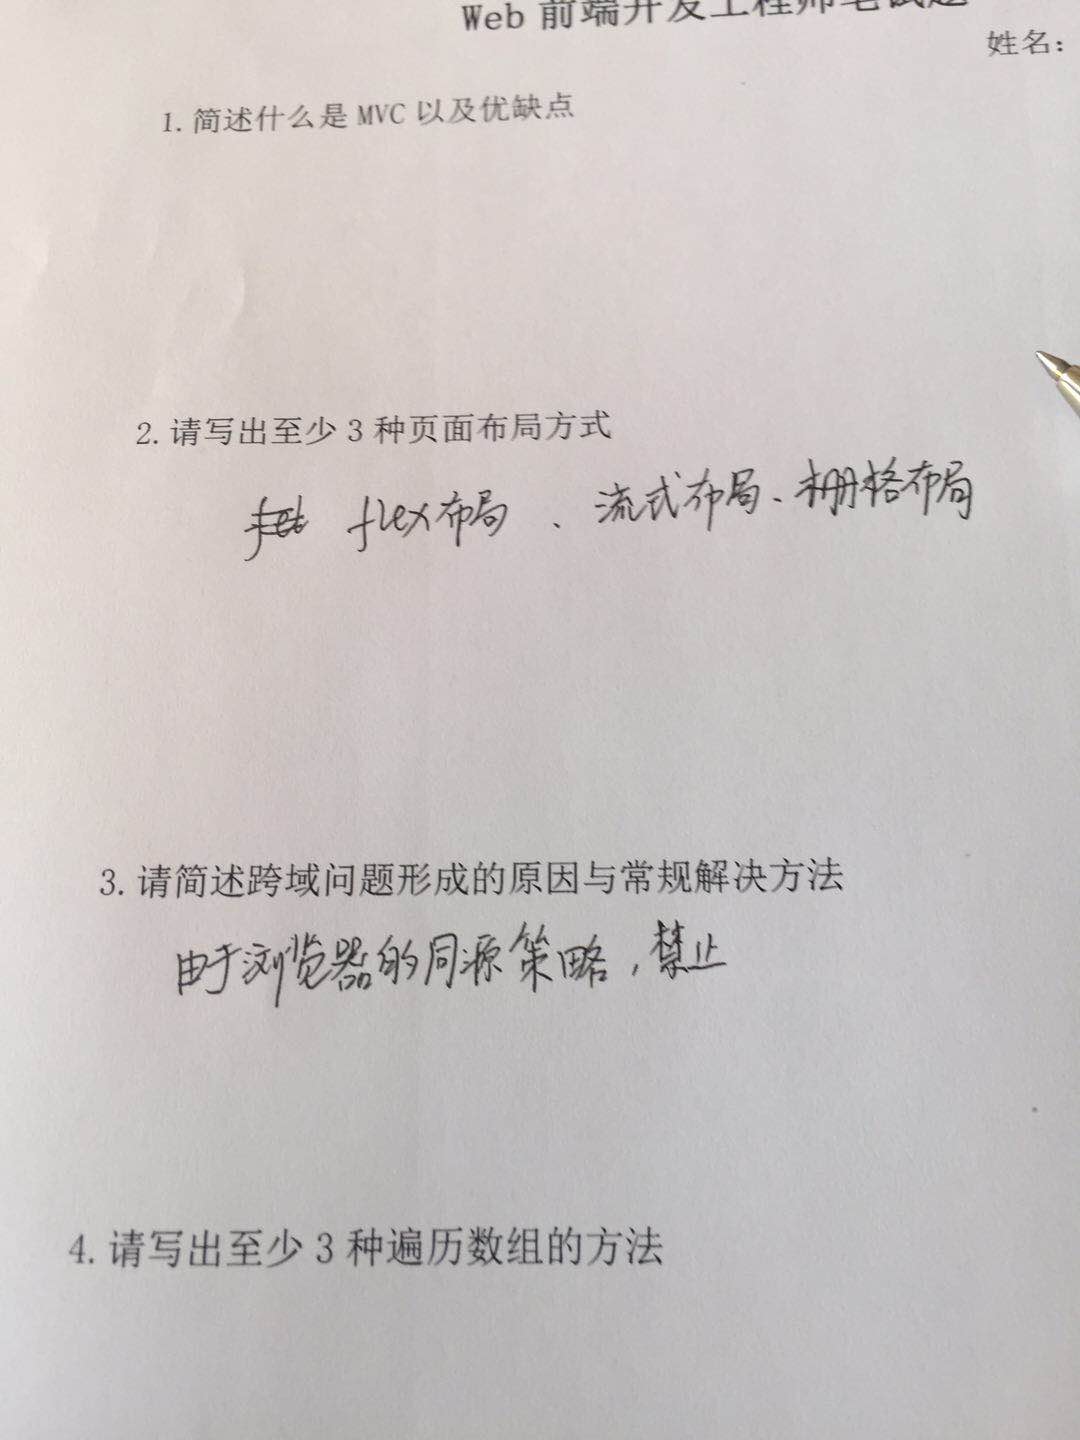 Web 前端开发工程师笔试题
姓名：
1. 简述什么是 MVC 以及优缺点
2. 请写出至少 3 种页面布局方式
flex布局、流式布局、栅格布局
3. 请简述跨域问题形成的原因与常规解决方法
由于浏览器的同源策略，禁止
4. 请写出至少 3 种遍历数组的方法